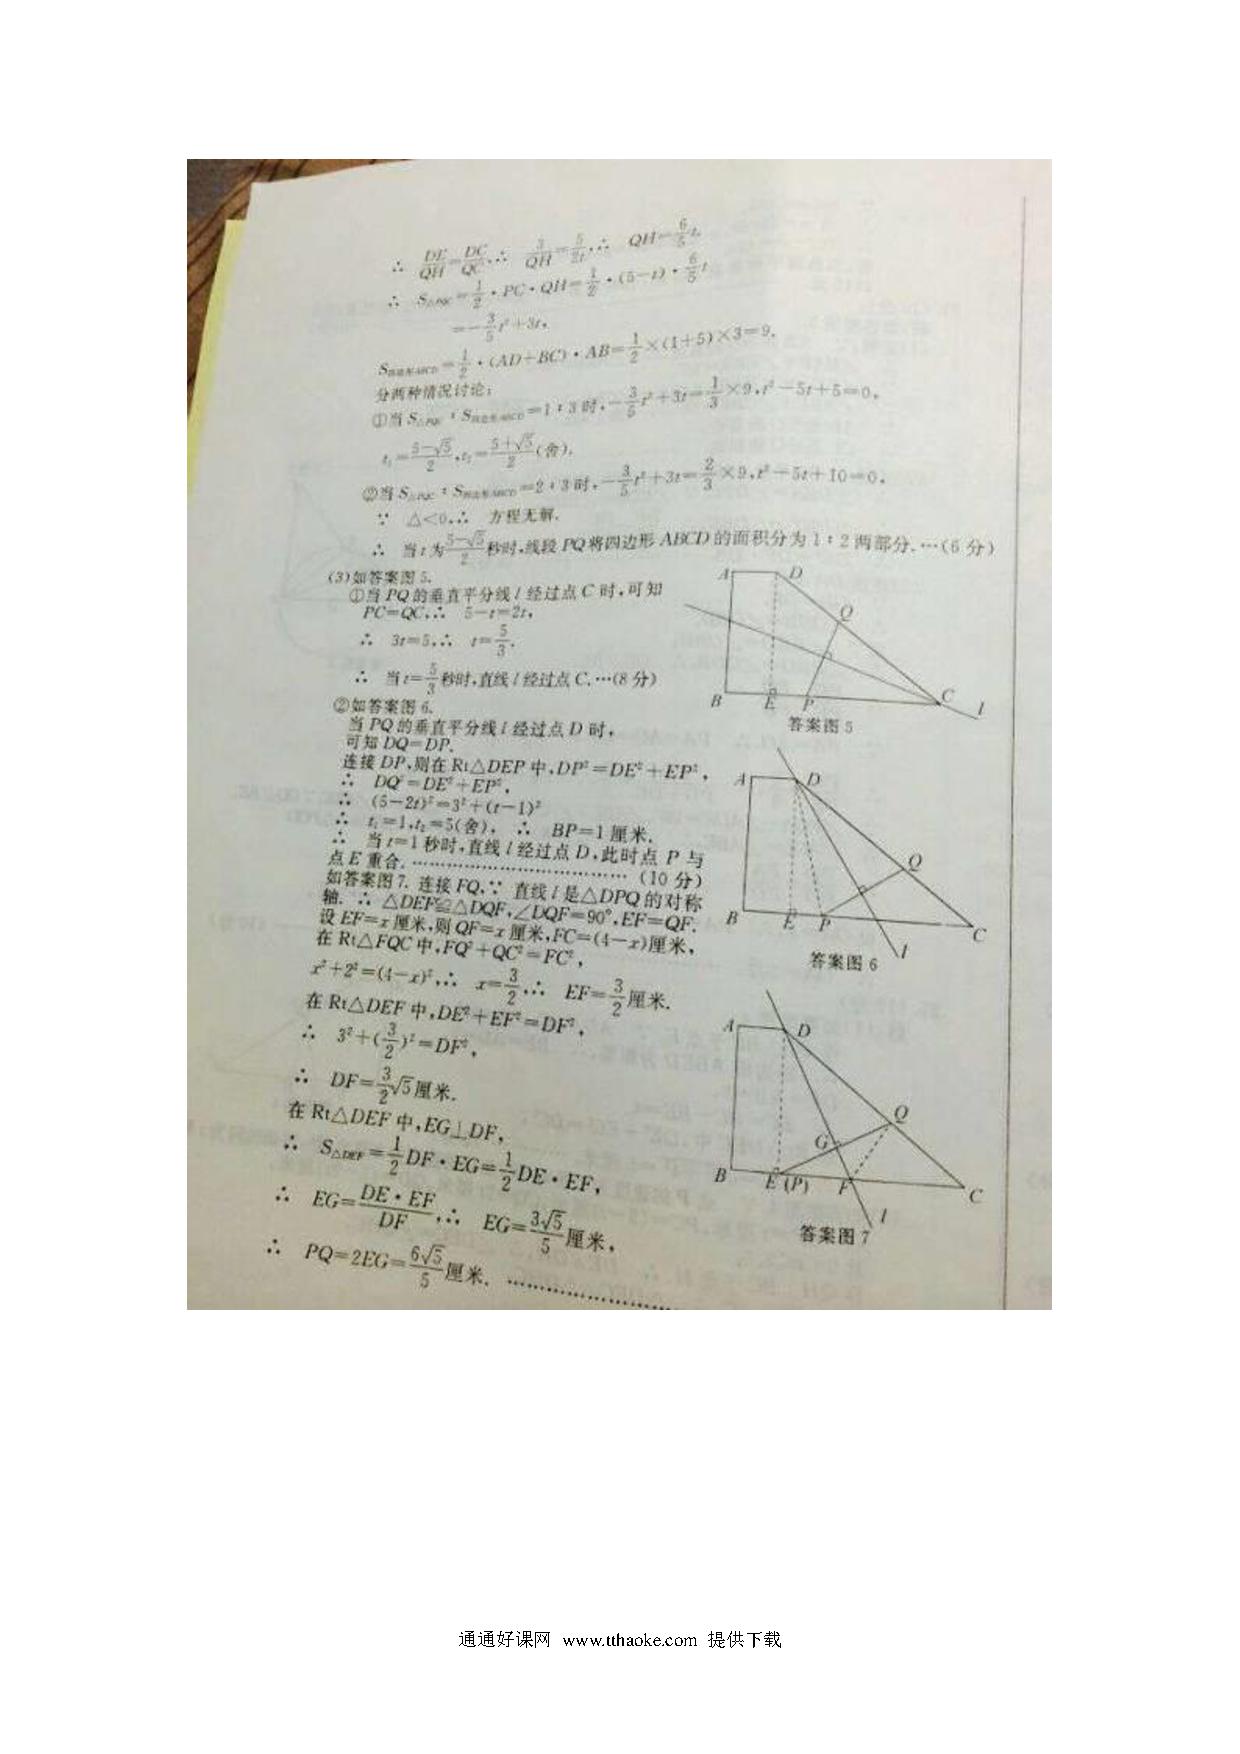 ∴ DE/QH=DC/QC,∴ 3/QH=5/2t,∴ QH=6/5t,
∴ S△PQC=1/2·PC·QH=1/2·(5-t)·6/5t
=-3/5t²+3t,
S四边形ABCD=1/2·(AD+BC)·AB=1/2×(1+5)×3=9.
分两种情况讨论:
①当S△PQC:S四边形ABCD=1:3时,-3/5t²+3t=1/3×9,t²-5t+5=0,
t₁=(5-√5)/2,t₂=(5+√5)/2(舍).
②当S△PQC:S四边形ABCD=2:3时,-3/5t²+3t=2/3×9,t²-5t+10=0,
∵ △<0,∴ 方程无解.
∴ 当t为(5-√5)/2秒时,线段PQ将四边形ABCD的面积分为1:2两部分.…(6分)
(3)如答案图5.
①当PQ的垂直平分线l经过点C时,可知
PC=QC,∴ 5-t=2t,
∴ 3t=5,∴ t=5/3.
∴ 当t=5/3秒时,直线l经过点C.…(8分)
②如答案图6.
当PQ的垂直平分线l经过点D时,
可知DQ=DP.
连接DP,则在Rt△DEP中,DP²=DE²+EP²,
∴ DQ²=DE²+EP²,
∴ (5-2t)²=3²+(t-1)²
∴ t₁=1,t₂=5(舍), ∴ BP=1厘米.
∴ 当t=1秒时,直线l经过点D,此时点P与
点E重合.……………………………(10分)
如答案图7.连接FQ,∵ 直线l是△DPQ的对称
轴.∴ △DEF≌△DQF,∠DQF=90°,EF=QF.
设EF=x厘米,则QF=x厘米,FC=(4-x)厘米,
在Rt△FQC中,FQ²+QC²=FC²,
x²+2²=(4-x)²,∴ x=3/2,∴ EF=3/2厘米.
在Rt△DEF中,DE²+EF²=DF²,
∴ 3²+(3/2)²=DF²,
∴ DF=3/2√5厘米.
在Rt△DEF中,EG⊥DF,
∴ S△DEF=1/2DF·EG=1/2DE·EF,
∴ EG=DE·EF/DF,∴ EG=3√5/5厘米,
∴ PQ=2EG=6√5/5厘米.……………………
A D
Q
B E P C l
答案图5
A D
Q
B E P C
l
答案图6
A D
Q
G
B E(P) F C
l
答案图7
通通好课网 www.tthaoke.com 提供下载